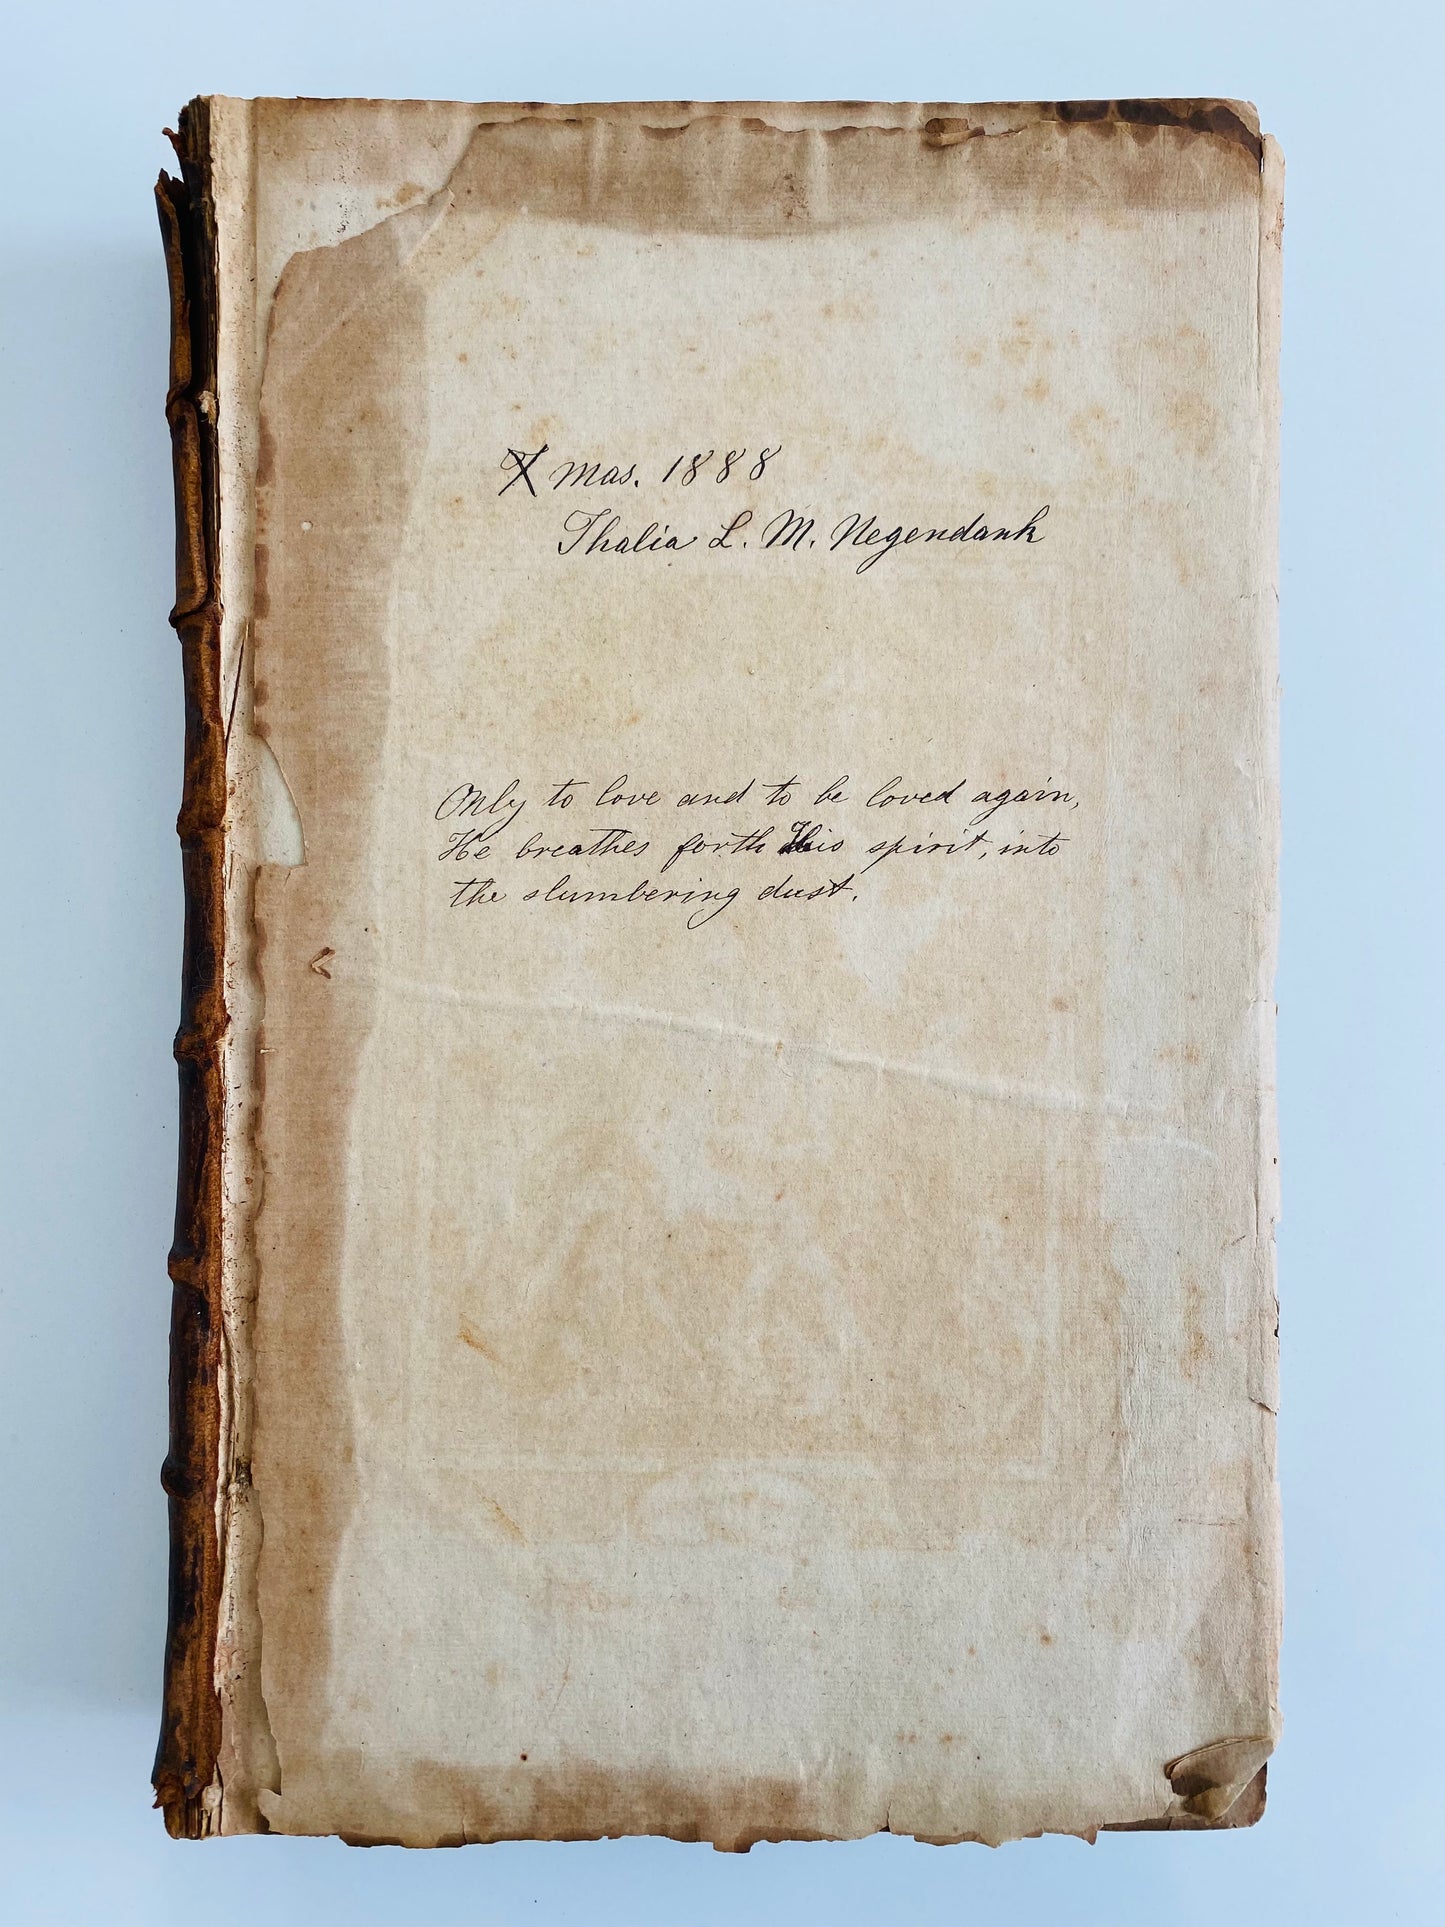 Xmas. 1888
Thalia L. M. Negendank
Only to love and to be loved again,
He breathes forth His spirit, into
the slumbering dust.